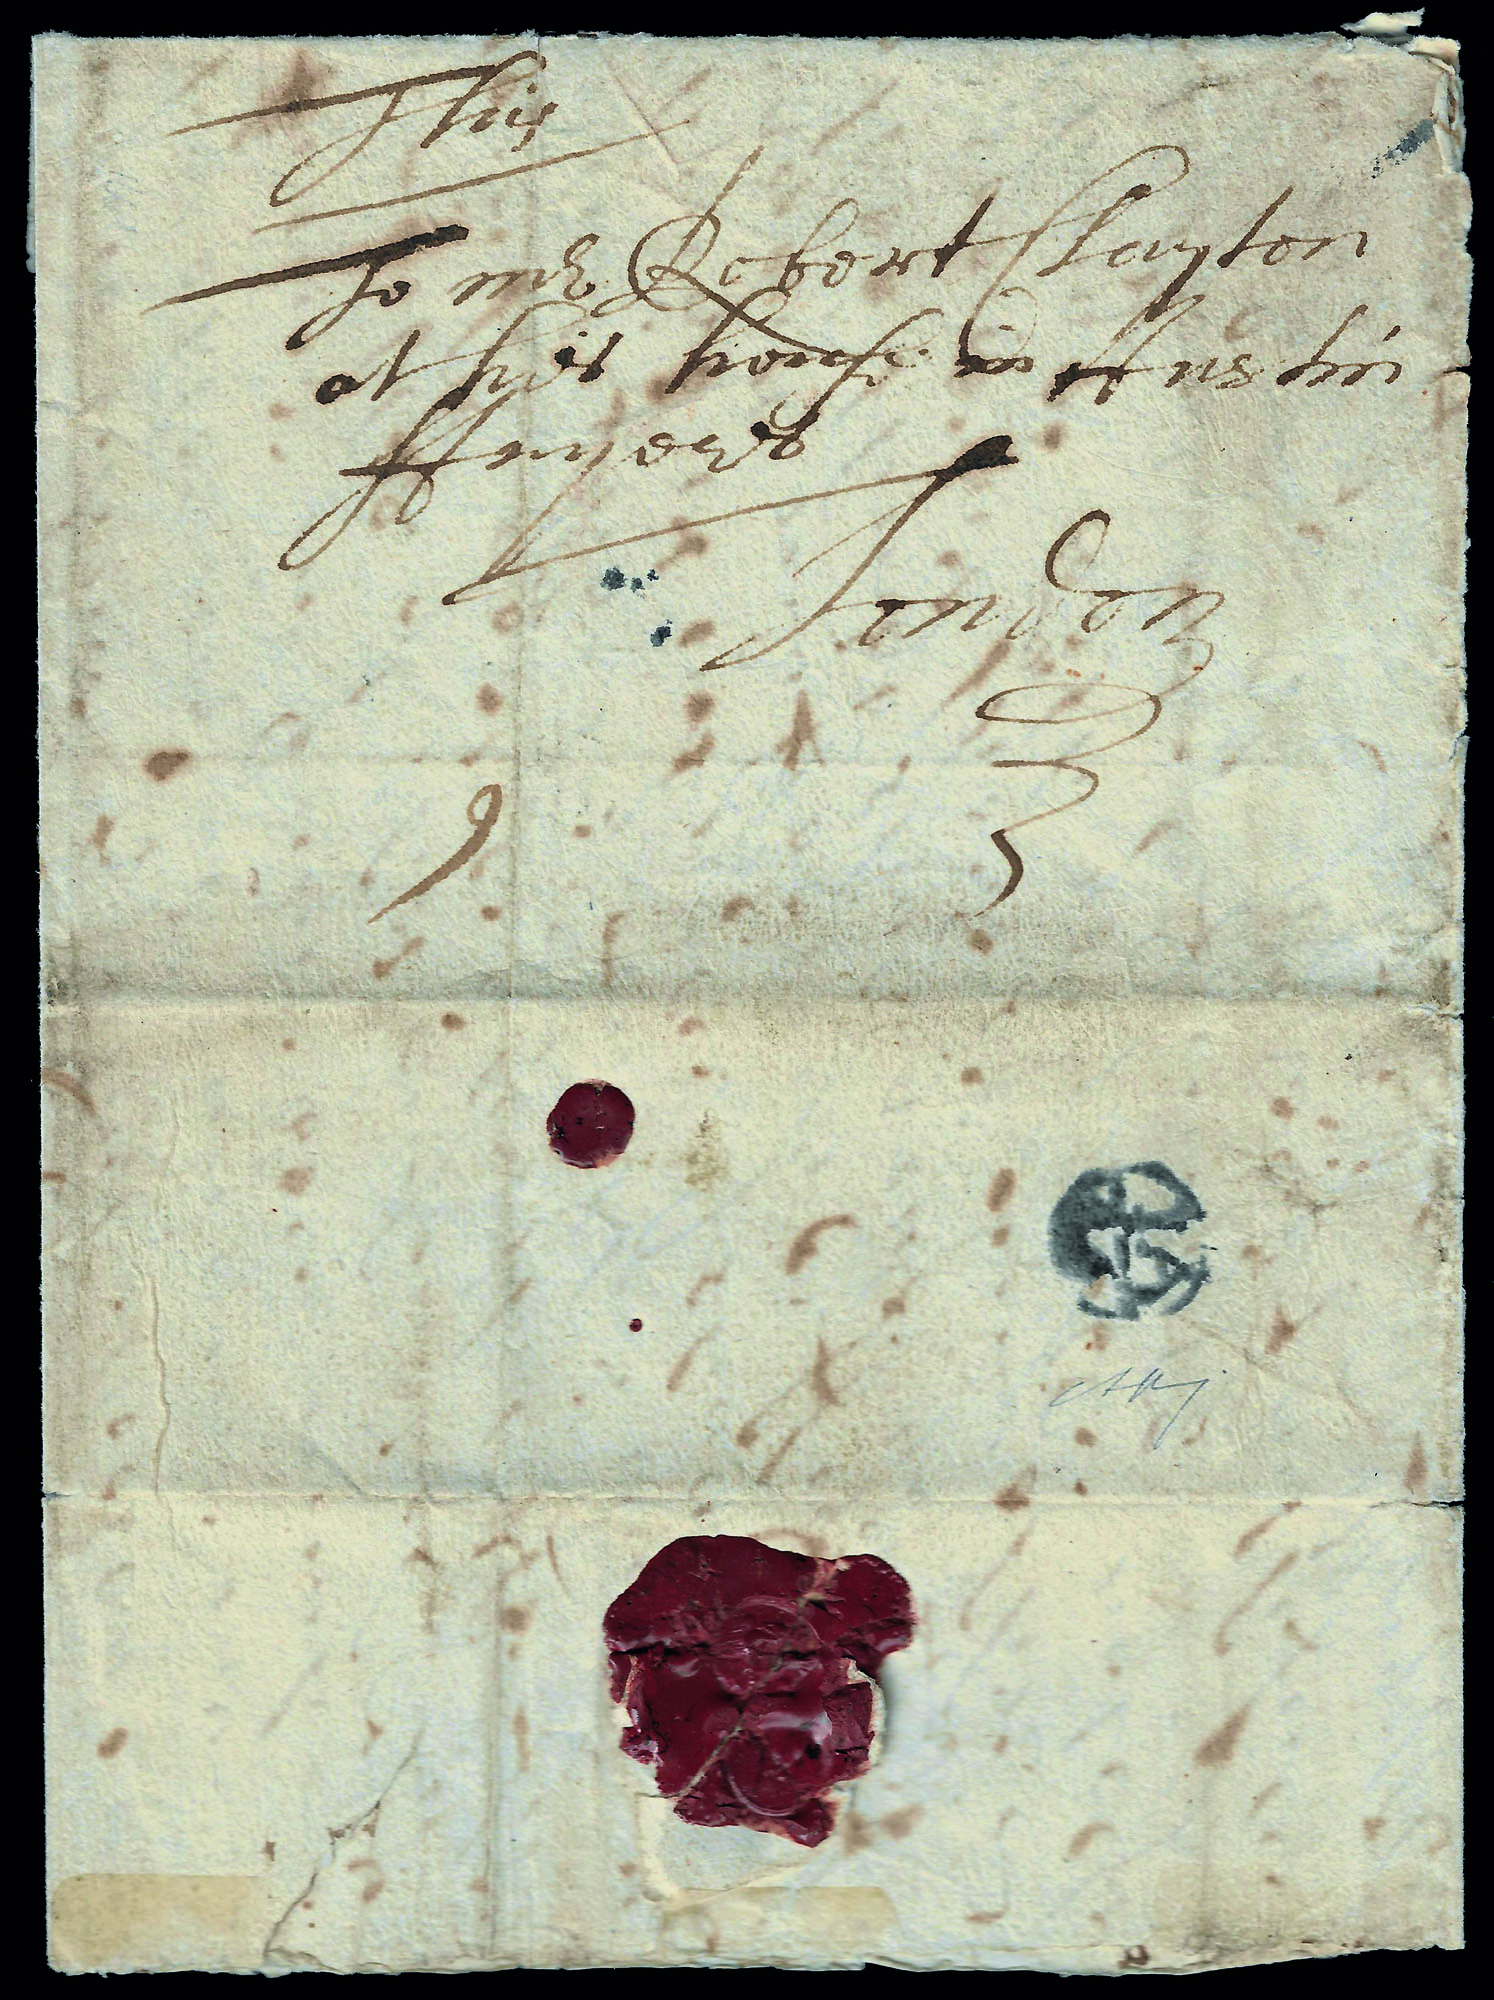 This
To mr Robert Clayton
at his house in Austin
ffryers
London
9